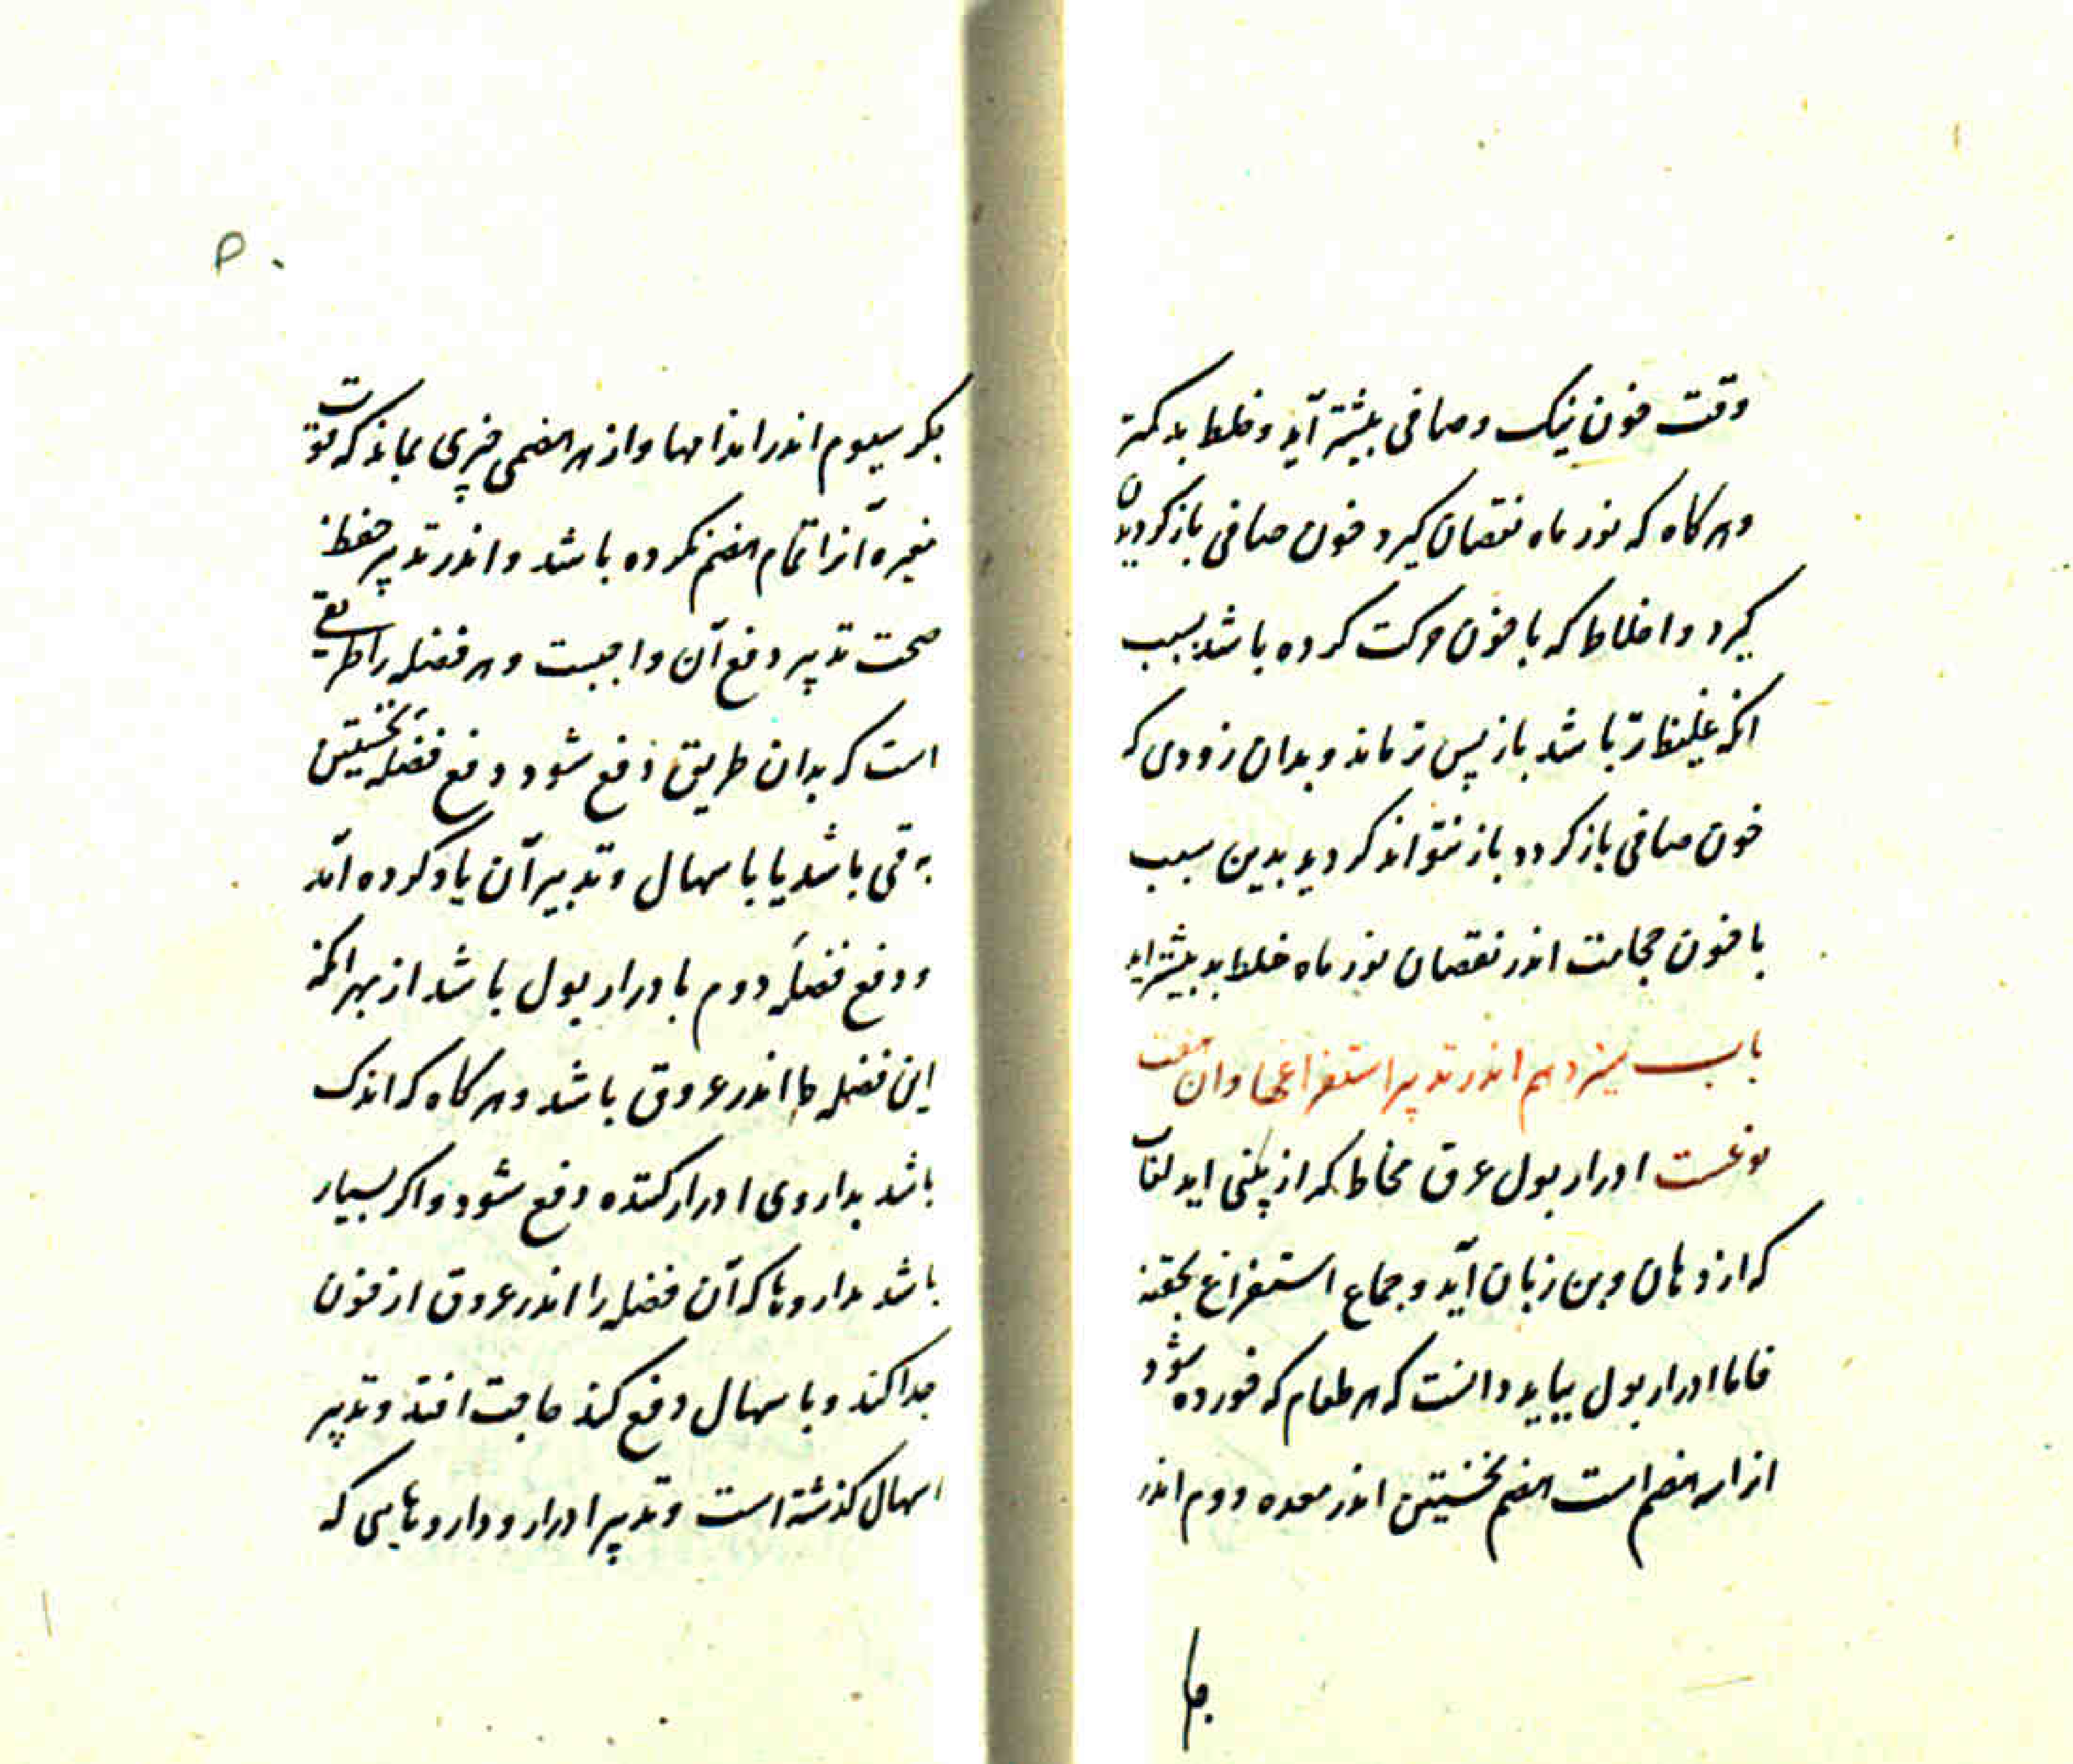 وقت خون نیک و صافی بیشتر آید و خلط بد کمتر
و هر کاه که نور ماه نقصان کیرد خون صافی باز کردیدن
کیرد و اخلاط که با خون حرکت کرده باشد بسبب
انکه غلیظ تر باشد باز پس تر ماند و بدان زودی که
خون صافی باز کردد باز نتواند کردید بدین سبب
با خون حجامت اندر نقصان نور ماه خلط بد بیشتر اید
باب سیزدهم اندر تدبیر استفراغها و ان هفت
نوعست ادرار بول عرق مخاط که از بینی اید لعاب
که از دهان و بن زبان آید و جماع استفراغ بحقنه
فاما ادرار بول بباید دانست که هر طعام که خورده شود
انرا سه هضم است هضم نخستین اندر معده دوم اندر
۵۰
جکر سیوم اندر اندامها و از هر هضمی چیزی بماند که قوت
مغیره آنرا تمام هضم نکرده باشد و اندر تدبیر حفظ
صحت تدبیر دفع آن واجبست و هر فضله را طریقی
است که بدان طریق دفع شود دفع فضله نخستین
به قی باشد یا باسهال و تدبیر آن یاد کرده آمد
و دفع فضله دوم بادرار بول باشد از بهر انکه
این فضله ها اندر عروق باشد و هر کاه که اندک
باشد بداروی ادرار کننده دفع شود و اکر بسیار
باشد بداروها که آن فضله را اندر عروق از خون
جدا کند و باسهال دفع کند حاجت افتد و تدبیر
اسهال کذشته است و تدبیر ادرار و داروهایی که